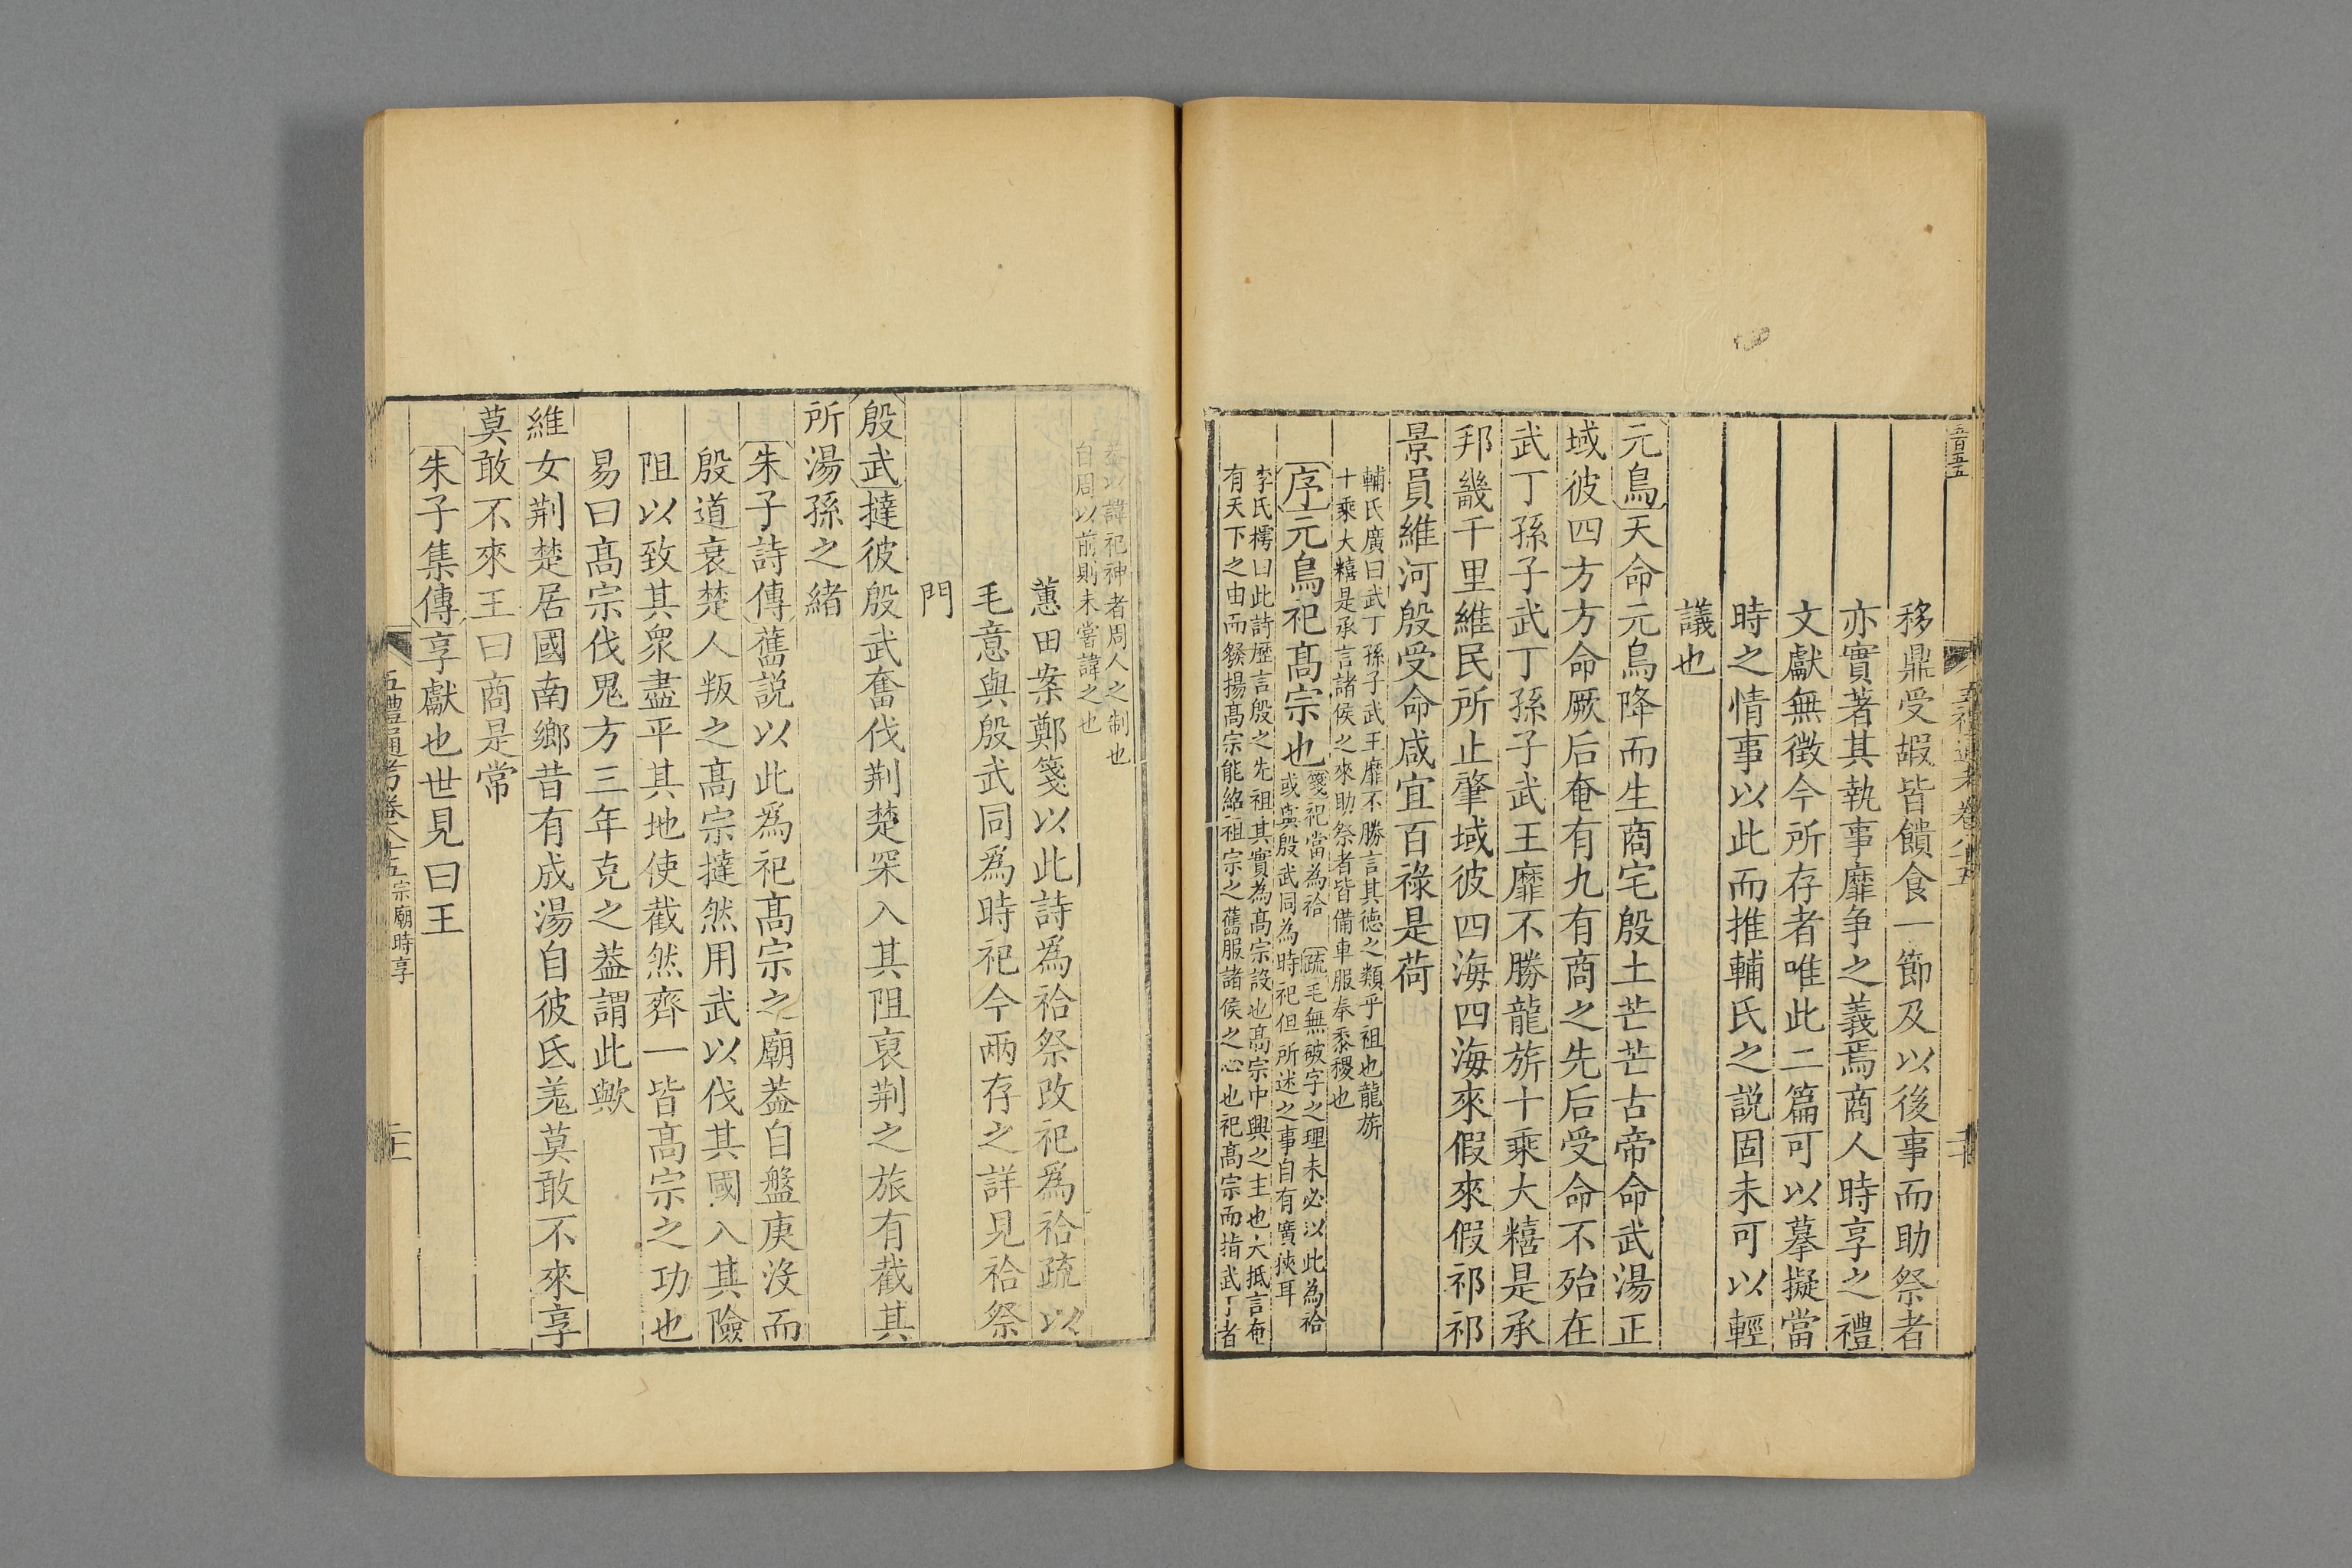 五百五五
五禮通考卷八十五
移鼎受嘏皆饋食一節及以後事而助祭者
亦實著其執事靡争之義焉商人時享之禮
文獻無徴今所存者唯此二篇可以摹擬當
時之情事以此而推輔氏之説固未可以輕
議也
元鳥天命元鳥降而生商宅殷土芒芒古帝命武湯正
域彼四方方命厥后奄有九有商之先后受命不殆在
武丁孫子武丁孫子武王靡不勝龍旂十乘大糦是承
邦畿千里維民所止肇域彼四海四海來假來假祁祁
景員維河殷受命咸宜百祿是荷
輔氏廣曰武丁孫子武王靡不勝言其徳之類乎祖也龍旂
十乘大糦是承言諸侯之來助祭者皆備車服奉黍稷也
序元鳥祀髙宗也
箋祀當為祫 疏毛無破字之理未必以此為祫
或與殷武同為時祀但所述之事自有廣狹耳
李氏樗曰此詩歴言殷之先祖其實為髙宗設也髙宗中興之主也大抵言奄
有天下之由而發揚髙宗能紹祖宗之舊服諸侯之心也祀髙宗而指武丁者
葢以諱祀神者周人之制也
自周以前則未嘗諱之也
蕙田案鄭箋以此詩爲祫祭改祀爲祫疏以
毛意與殷武同爲時祀今兩存之詳見祫祭
門
殷武撻彼殷武奮伐荆楚罙入其阻裒荆之旅有截其
所湯孫之緒
朱子詩傳舊説以此爲祀髙宗之廟葢自盤庚没而
殷道衰楚人叛之髙宗撻然用武以伐其國入其險
阻以致其衆盡平其地使截然齊一皆髙宗之功也
易曰髙宗伐鬼方三年克之葢謂此歟
維女荆楚居國南鄉昔有成湯自彼氐羌莫敢不來享
莫敢不來王曰商是常
朱子集傳享獻也世見曰王
五禮通考卷八十五 宗廟時享
二十一